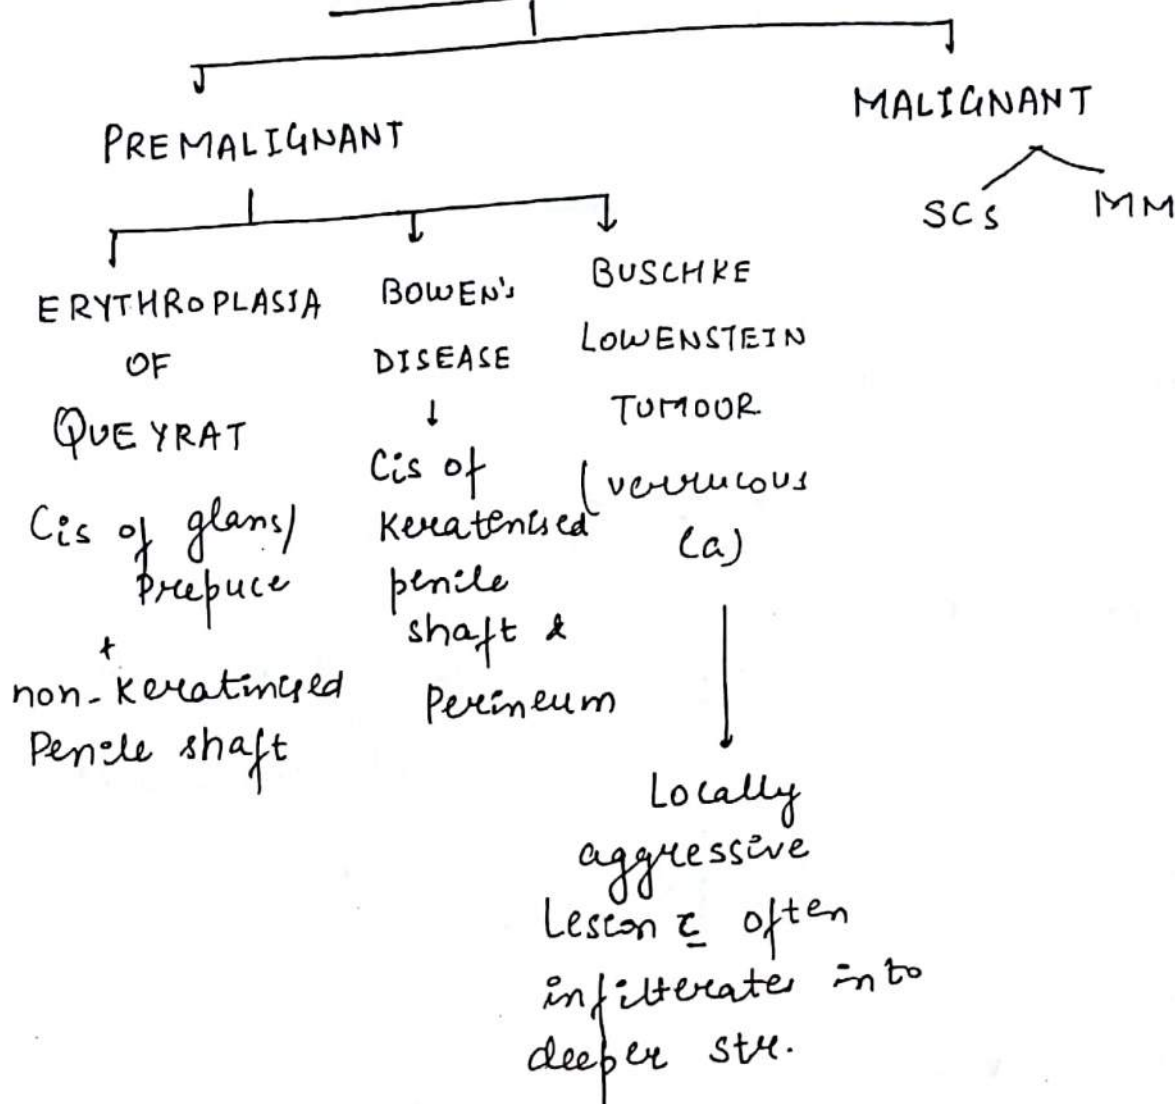 PREMALIGNANT
MALIGNANT
SCs
MM
ERYTHROPLASIA
OF
QUEYRAT
Cis of glans/
Prepuce
+
non-keratinised
Penile shaft
BOWEN's
DISEASE
↓
Cis of
Keratenised
penile
shaft &
Perineum
BUSCHKE
LOWENSTEIN
TUMOUR
(verrucous
(a)
Locally
aggressive
Lesion c̄ often
infilterates into
deeper str.